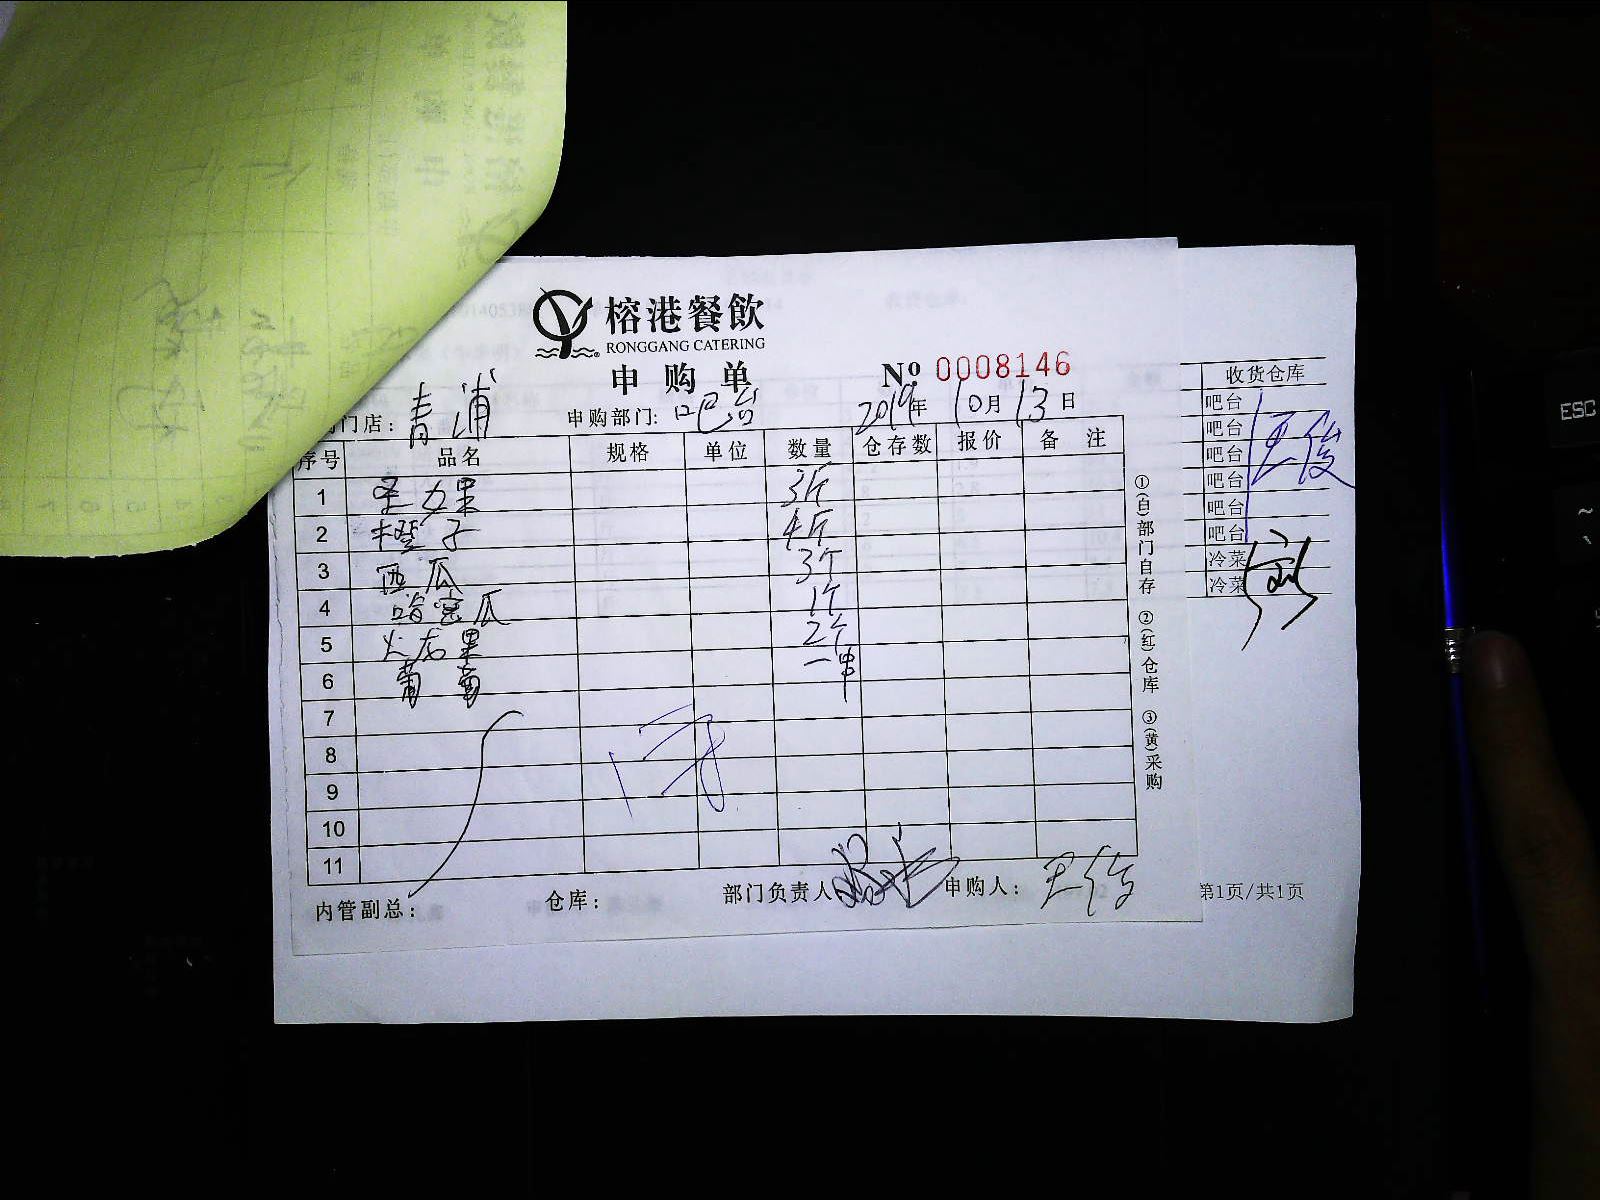 榕港餐飲
RONGGANG CATERING
申购单
№ 0008146
门店: 青浦 申购部门: 吧台 2019年10月13日
序号 品名 规格 单位 数量 仓存数 报价 备注
1 圣女果 3斤
2 橙子 4斤
3 西瓜 3个
4 哈密瓜 1个
5 火龙果 2个
6 葡萄 一串
7
8
9
10
11
内管副总: 仓库: 部门负责人 申购人: 王俊
①(白)部门自存 ②(红)仓库 ③(黄)采购
收货仓库
吧台
吧台
吧台
吧台
吧台
吧台
冷菜
冷菜
王俊
第1页/共1页
ESC